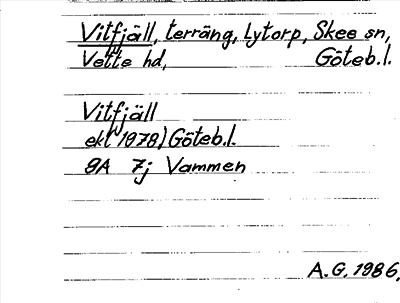 Vitfjäll, terräng, Lytorp, Skee sn,
Vette hd, Göteb.l.
Vitfjäll
ekl 1978) Göteb.l.
9A 7j Vammen
A.G. 1986.